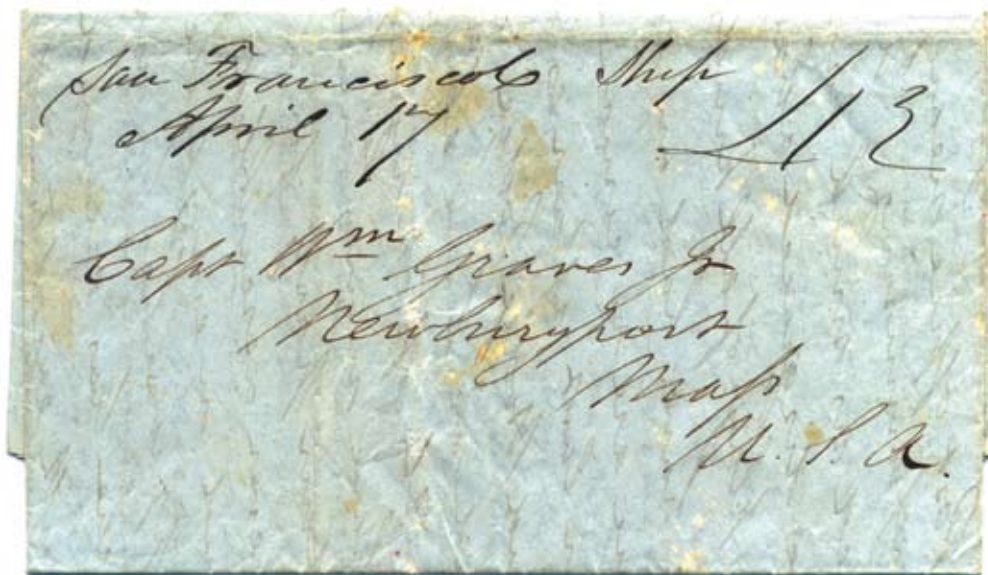 San Francisco Ship
April 17 42
Capt Wm Graves Jr
Newburyport
Mass
U. S. A.